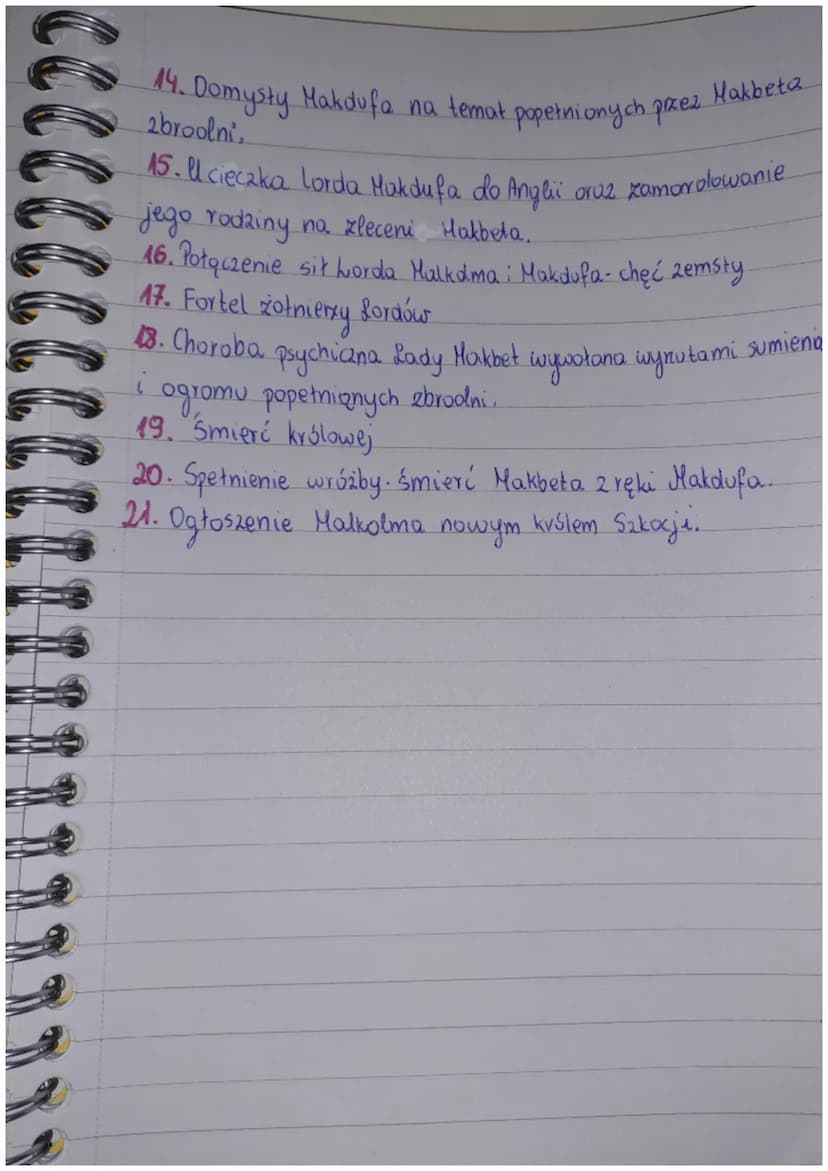 14. Domysły Makdufa na temat popełnionych przez Makbeta
zbrodni.
15. Ucieczka lorda Makdufa do Anglii oraz zamordowanie
jego rodziny na zleceni Makbeta.
16. Połączenie sił Lorda Malkolma i Makdufa - chęć zemsty
17. Fortel żołnierzy Lordów
18. Choroba psychiczna Lady Makbet wywołana wyrzutami sumienia
i ogromu popełnionych zbrodni.
19. Śmierć królowej
20. Spełnienie wróżby. Śmierć Makbeta z ręki Makdufa.
21. Ogłoszenie Malkolma nowym królem Szkocji.